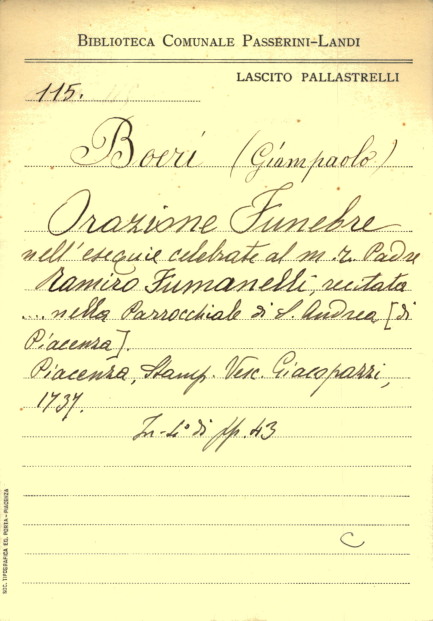 BIBLIOTECA COMUNALE PASSERINI-LANDI
LASCITO PALLASTRELLI
115.
Boeri (Giampaolo)
Orazione Funebre
nell'esequie celebrate al m. r. Padre
Ramiro Fumanelli, recitata
... nella Parrocchiale di S. Andrea [di
Piacenza].
Piacenza, Stamp. Vesc. Giacopazzi,
1737.
In-4° di pp. 43
C
SOC. TIPOGRAFICA ED. PORTA - PIACENZA